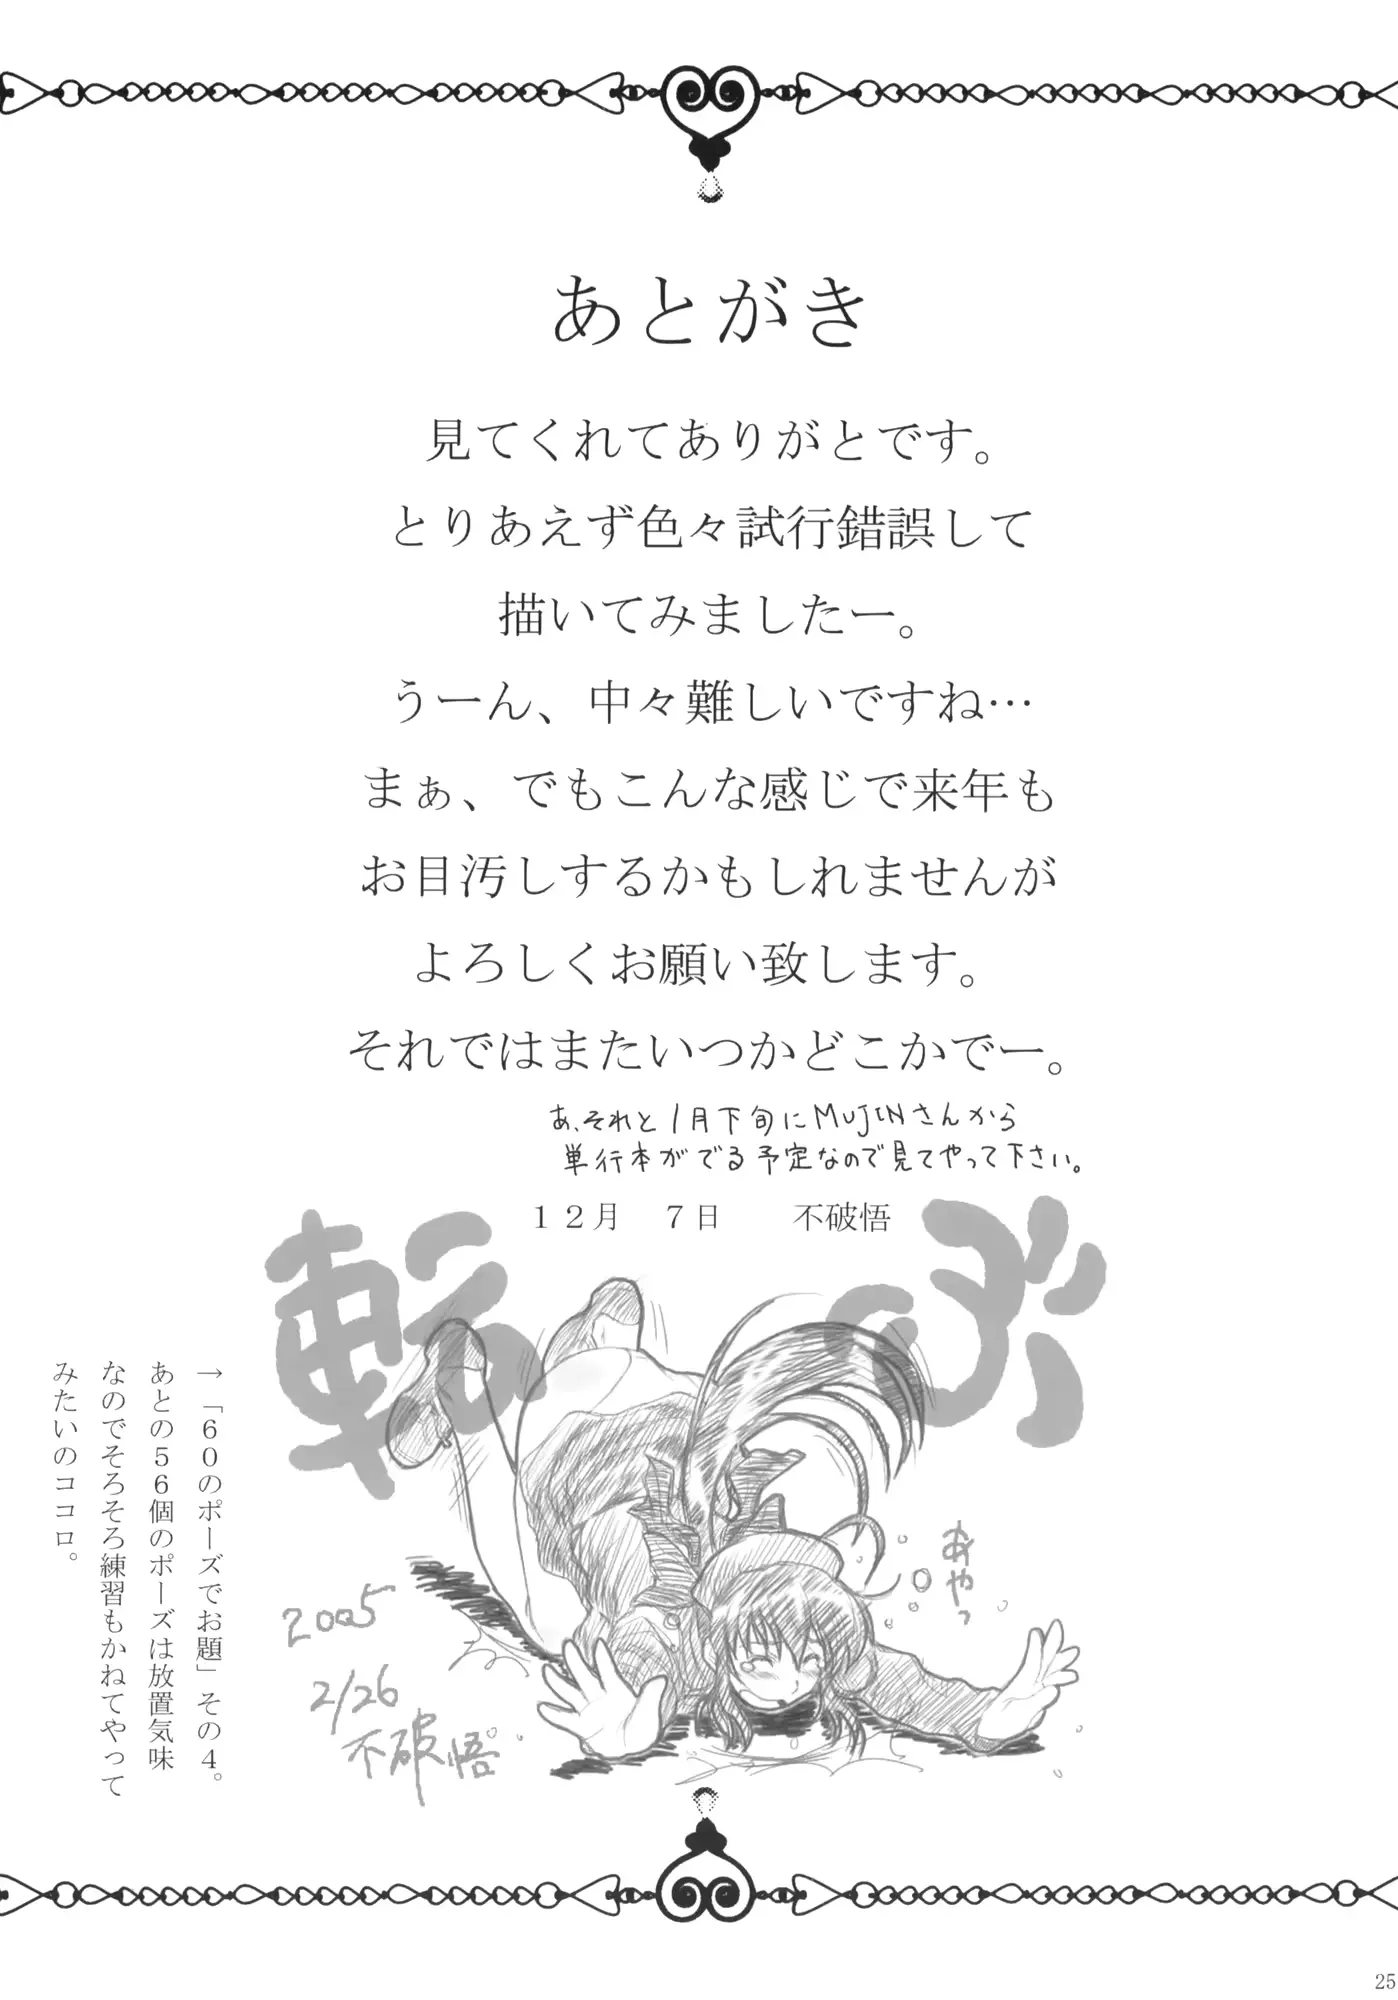 あとがき
見てくれてありがとです。
とりあえず色々試行錯誤して
描いてみましたー。
うーん、中々難しいですね…
まぁ、でもこんな感じで来年も
お目汚しするかもしれませんが
よろしくお願い致します。
それではまたいつかどこかでー。
あ、それと1月下旬にMUJINさんから
単行本がでる予定なので見てやって下さい。
12月　7日　　不破悟
転ぶ
あやっ
2005
2/26
不破悟
→「60のポーズでお題」その4。
あとの56個のポーズは放置気味
なのでそろそろ練習もかねてやって
みたいのココロ。
25